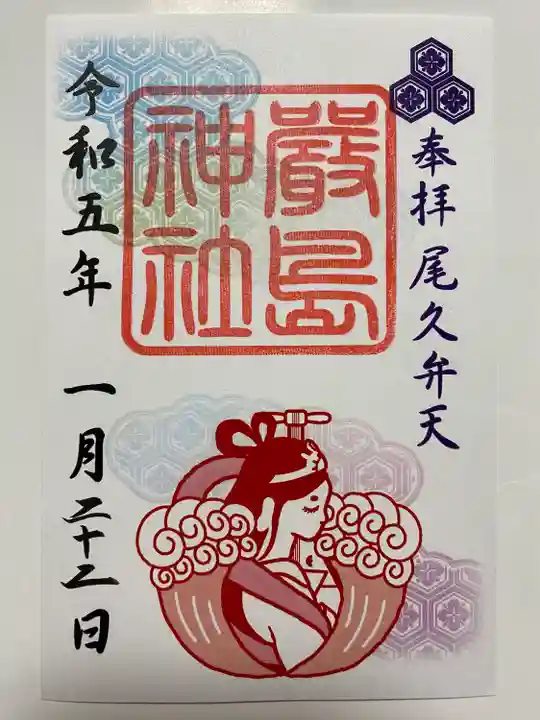 奉拝 尾久弁天
嚴島
神社
令和五年 一月二十二日